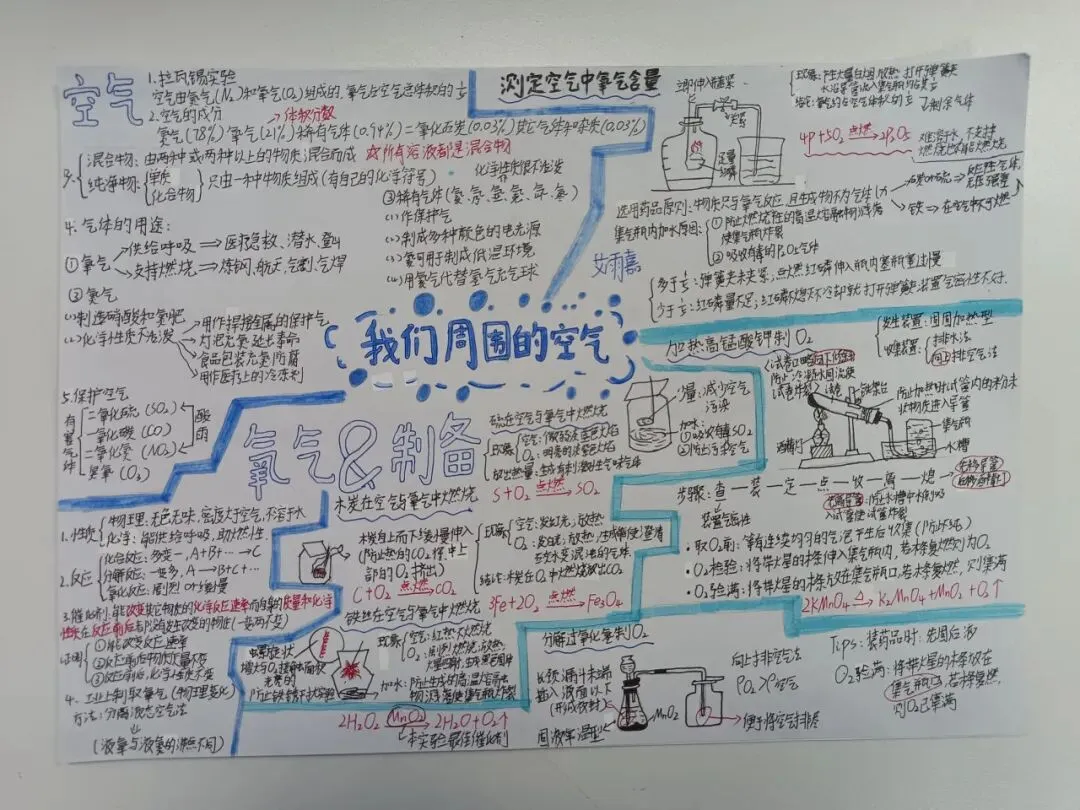 空气
1.拉瓦锡实验
空气由氮气(N₂)和氧气(O₂)组成的,氧气占空气总体积的1/5
2.空气的成分
体积分数
氮气(78%)氧气(21%)稀有气体(0.94%)二氧化碳(0.03%)其它气体和杂质(0.03%)
3.
混合物:由两种或两种以上的物质混合而成
所有溶液都是混合物
纯净物:
单质
化合物
只由一种物质组成(有自己的化学符号)
化学性质很不活泼
③稀有气体
(1)作保护气
(2)制成多种颜色的电光源
(3)氦可用于制成低温环境
(4)用氦气代替氢气充气球
4.气体的用途:
①氧气
供给呼吸⇒医疗急救、潜水、登山
支持燃烧⇒炼钢、航天、气割、气焊
②氮气
(1)制造硝酸和氮肥
(2)化学性质不活泼
用作焊接金属的保护气
灯泡充氮延长寿命
食品包装充氮防腐
用作医疗上的冷冻剂
5.保护空气
有害气体
二氧化硫(SO₂)
一氧化碳(CO)
二氧化氮(NO₂)
臭氧(O₃)
酸雨
测定空气中氧气含量
止水夹
足量
红磷
水沿导管
4P+5O₂ 点燃 2P₂O₅
选用药品原则:物质只与氧气反应,且生成物不为气体
集气瓶内加水原因:
①防止燃烧后的高温熔融物溅落使集气瓶炸裂
②吸收有毒的P₂O₅气体
铁⇒在空气中不可燃
多于1/5:弹簧夹未夹紧;点燃红磷伸入瓶内塞瓶塞过慢
少于1/5:红磷量不足;红磷熄灭不冷却就打开弹簧夹;装置气密性不好.
艾雨嘉
我们周围的空气
氧气&制备
加热高锰酸钾制O₂
发生装置:固固加热型
收集装置:
排水法
向上排空气法
试管口略向下倾斜
防止冷凝水回流使试管炸裂
铁架台
防止加热时试管内的粉末状物质进入导管
集气瓶
水槽
酒精灯
步骤:查—装—定—点—收—离—熄
装置气密性
先移导管
后移酒精灯
·取O₂前:等有连续均匀的气泡平后收集(防不纯)
·O₂检验:将带火星的木条伸入集气瓶内,若木条复燃则为O₂
·O₂验满:将带火星的木条放在集气瓶口,若木条复燃,则集满
2KMnO₄ △ K₂MnO₄+MnO₂+O₂↑
硫在空气与氧气中燃烧
现象
空气:微弱淡蓝色火焰
O₂:明亮的蓝紫色火焰
放出热量,生成有刺激性气味气体
S+O₂ 点燃 SO₂
少量:减少空气污染
加水:
①吸收有毒SO₂
②防止污染空气
木炭在空气与氧气中燃烧
木炭自上而下缓慢伸入
(防止热的CO₂将中上部的O₂挤出)
C+O₂ 点燃 CO₂
现象
空气:发红光,放热
O₂:发白光,放热,生成能使澄清石灰水变浑浊的气体
结论:木炭在O₂中燃烧放出CO₂
铁丝在空气与氧气中燃烧
3Fe+2O₂ 点燃 Fe₃O₄
螺旋状
增大与O₂接触面积
现象
空气:红热不燃烧
O₂:剧烈燃烧,放热,火星四射,生成黑色固体
加水:防止生成的高温熔融物溅落使集气瓶炸裂
1.性质
物理:无色无味,密度大于空气,不溶于水
化学:能供给呼吸,助燃性
2.反应
化合反应:多变一,A+B+…→C
分解反应:一变多,A→B+C+…
氧化反应:剧烈or缓慢
3.催化剂:能改变其它物质的化学反应速率而自身的质量和化学性质在反应前后均没有发生改变的物质(一变两不变)
证明
①能改变反应速率
②反应前后物质质量不变
③反应前后,化学性质不变
4.工业上制取氧气(物理变化)
方法:分离液态空气法
(液氧与液氮的沸点不同)
2H₂O₂ MnO₂ 2H₂O+O₂↑
本实验最佳催化剂
分解过氧化氢制O₂
长颈漏斗末端插入液面以下
(形成液封)
MnO₂
固液常温型
向上排空气法
ρO₂>ρ空气
便于将空气排尽
Tips:装药品时,先固后液
O₂验满:将带火星的木条放在集气瓶口,若木条复燃,则O₂已集满